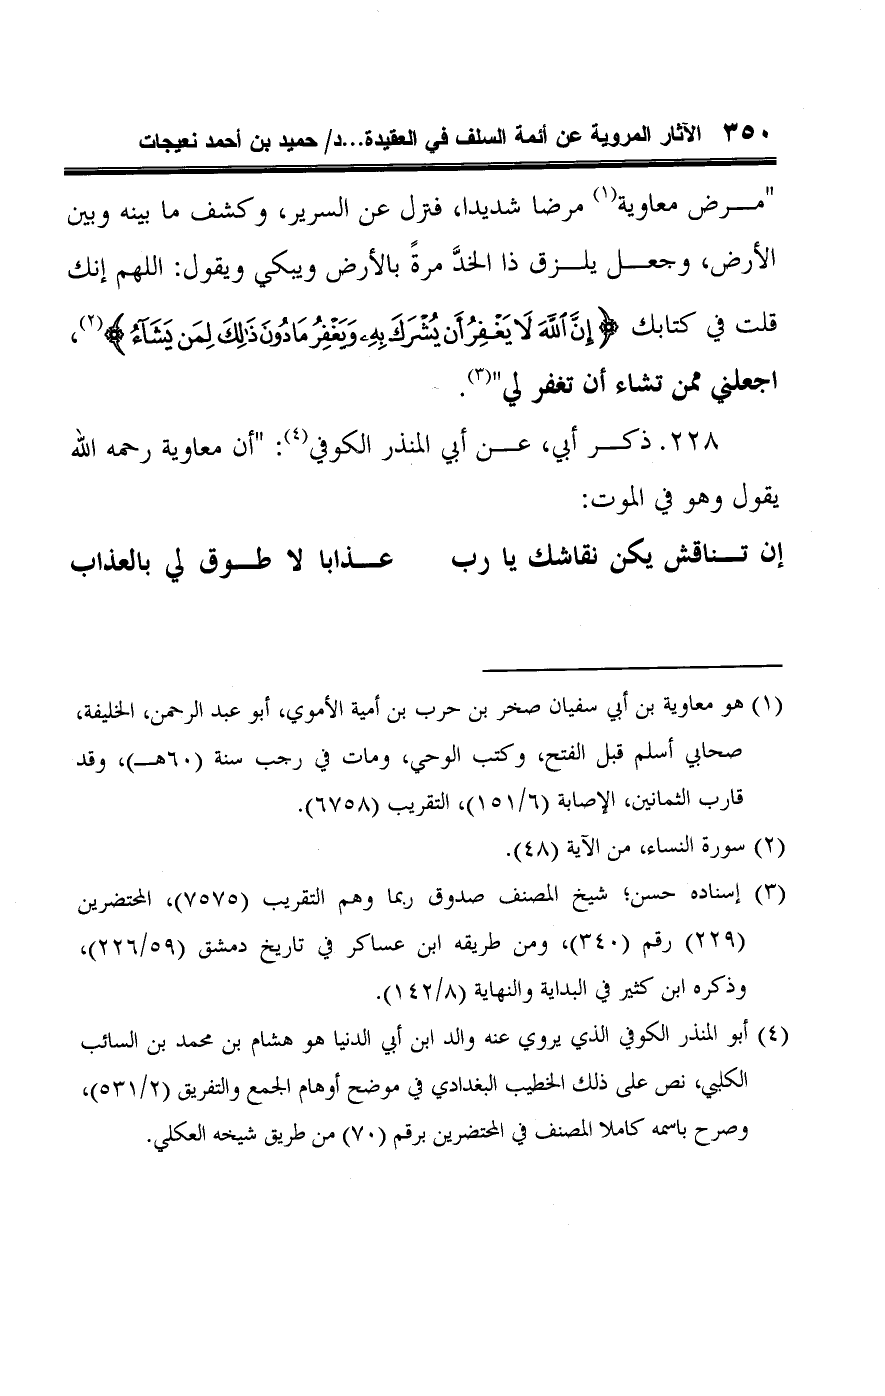 ٣٥٠ الآثار المروية عن أئمة السلف في العقيدة...د/ حميد بن أحمد نعيجات
"مـرض معاوية(١) مرضا شديدا، فنزل عن السرير، وكشف ما بينه وبين
الأرض، وجعـل يلـزق ذا الخدَّ مرةً بالأرض ويبكي ويقول: اللهم إنك
قلت في كتابك ﴿إِنَّ ٱللَّهَ لَا يَغْفِرُ أَن يُشْرَكَ بِهِۦ وَيَغْفِرُ مَا دُونَ ذَٰلِكَ لِمَن يَشَآءُ﴾(٢)،
اجعلني ممن تشاء أن تغفر لي"(٣).
٢٢٨. ذكـر أبي، عـن أبي المنذر الكوفي(٤): "أن معاوية رحمه الله
يقول وهو في الموت:
إن تـناقش يكن نقاشك يا رب عـذابا لا طـوق لي بالعذاب
(١) هو معاوية بن أبي سفيان صخر بن حرب بن أمية الأموي، أبو عبد الرحمن، الخليفة،
صحابي أسلم قبل الفتح، وكتب الوحي، ومات في رجب سنة (٦٠هـ)، وقد
قارب الثمانين، الإصابة (١٥١/٦)، التقريب (٦٧٥٨).
(٢) سورة النساء، من الآية (٤٨).
(٣) إسناده حسن؛ شيخ المصنف صدوق ربما وهم التقريب (٧٥٧٥)، المحتضرين
(٢٢٩) رقم (٣٤٠)، ومن طريقه ابن عساكر في تاريخ دمشق (٢٢٦/٥٩)،
وذكره ابن كثير في البداية والنهاية (١٤٢/٨).
(٤) أبو المنذر الكوفي الذي يروي عنه والد ابن أبي الدنيا هو هشام بن محمد بن السائب
الكلبي، نص على ذلك الخطيب البغدادي في موضح أوهام الجمع والتفريق (٥٣١/٢)،
وصرح باسمه كاملا المصنف في المحتضرين برقم (٧٠) من طريق شيخه العكلي.